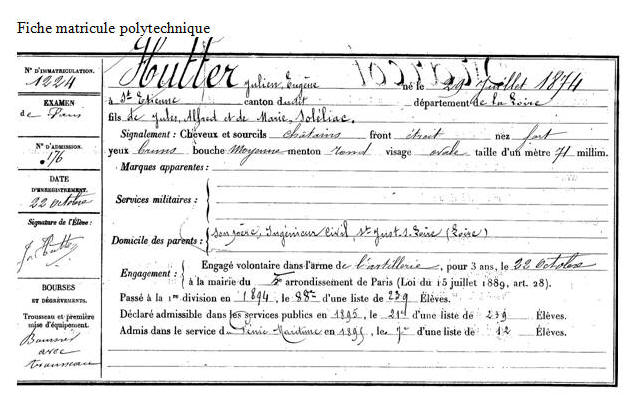 Fiche matricule polytechnique
N° D'IMMATRICULATION.
1224
EXAMEN
de Paris
N° D'ADMISSION.
176
DATE
D'ENREGISTREMENT.
22 octobre
Signature de l'Élève :
J. Hutter
BOURSES
ET DÉGRÈVEMENTS.
Trousseau et première
mise d'équipement.
Boursier
avec
trousseau
Hutter Julien, Eugène né le 29 Juillet 1874
à St Etienne canton dudit département de la Loire
fils de Jules, Alfred et de Marie, Soléliac.
Signalement : Cheveux et sourcils châtains front étroit nez fort
yeux bruns bouche moyenne menton rond visage ovale taille d'un mètre 71 millim.
Marques apparentes :
Services militaires :
Domicile des parents : son père, Ingénieur Civil, St Just s. Loire (Loire)
Engagement : Engagé volontaire dans l'arme de l'artillerie, pour 3 ans, le 22 octobre
à la mairie du 5e arrondissement de Paris (Loi du 15 juillet 1889, art. 28).
Passé à la 1re division en 1894, le 88e d'une liste de 239 Élèves.
Déclaré admissible dans les services publics en 1895, le 21e d'une liste de 239 Élèves.
Admis dans le service du Génie Maritime en 1895, le 7e d'une liste de 12 Élèves.